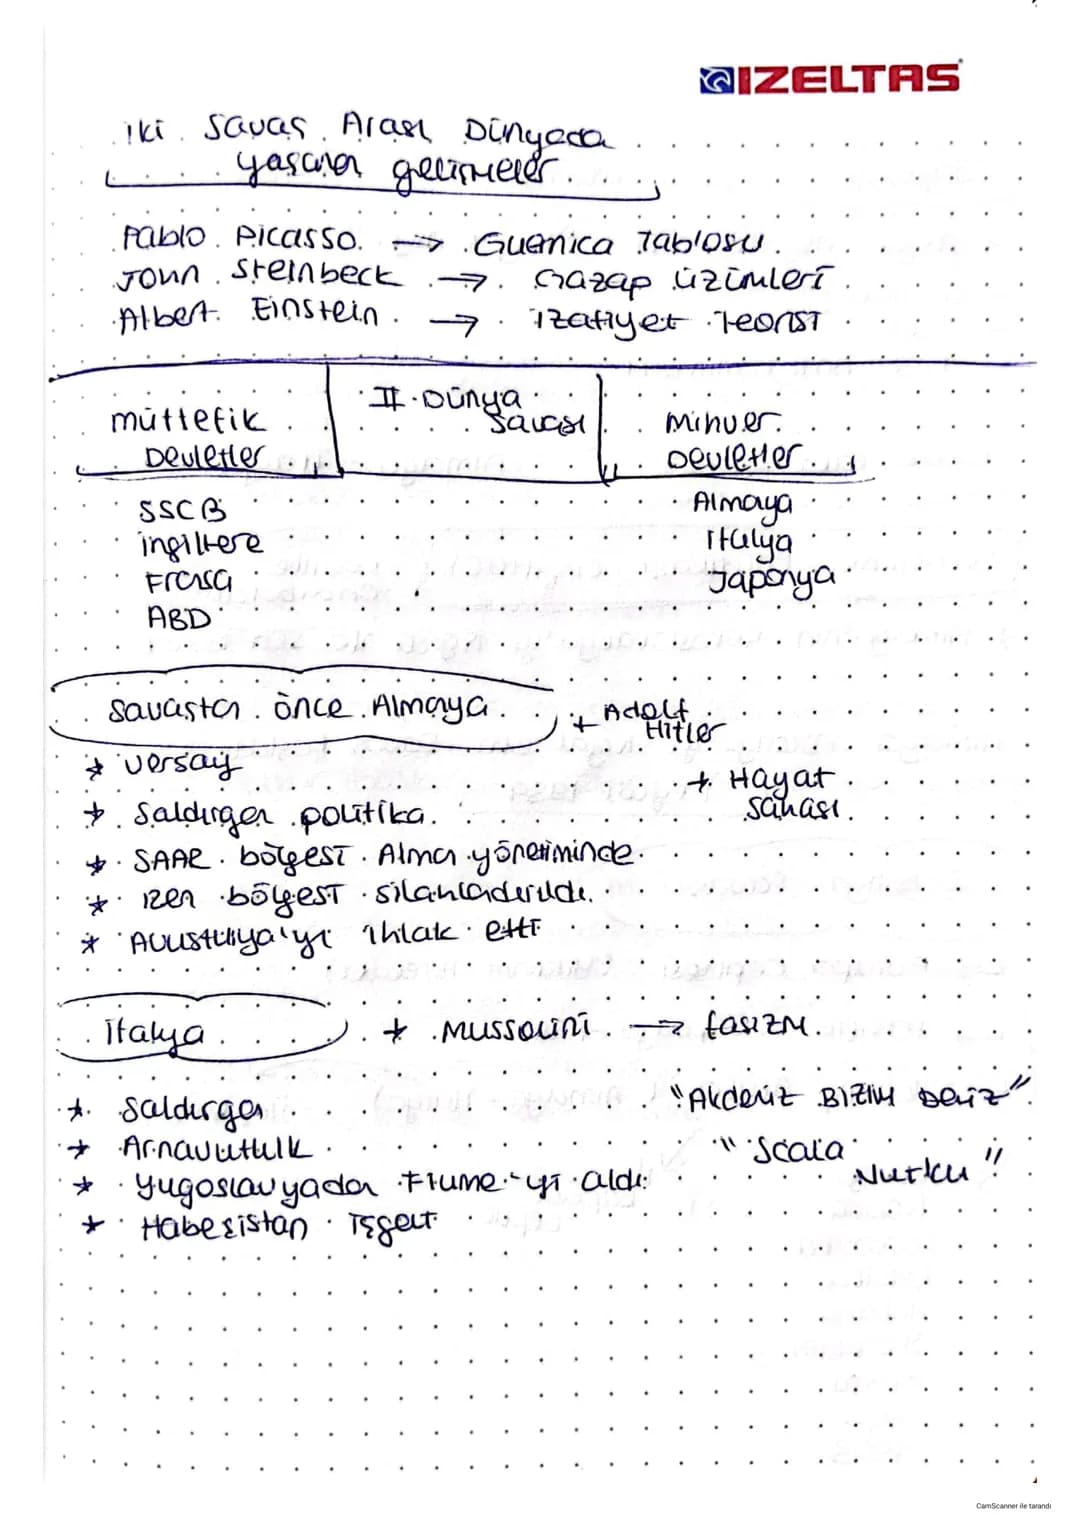 IZELTAS
iki Savaş Arası Dünyada
yaşanan gelişmeler
Pablo Picasso → Guernica Tablosu
John Steinbeck → Gazap üzümleri
Albert Einstein → izafiyet Teorisi
müttefik Devletler
II. Dünya Savaşı
Mihver Devletler
SSCB
ingiltere
Fransa
ABD
Almaya
italya
Japonya
Savaştan önce Almaya
+ Adolf Hitler
* Versay
+ Hayat sahası
* Saldırgan politika
* SAAR bölgesi Alman yönetiminde.
* Ren bölgesi silahlandırıldı.
* Avusturya'yı ihlak etti
italya
* Mussolini → faşizm
* Saldırgan
"Akdeniz Bizim Deniz"
* Arnavutluk
"Scala Nutku"
* Yugoslavyadan Fiume-yi aldı
* Habeşistan işgali
CamScanner ile tarandı